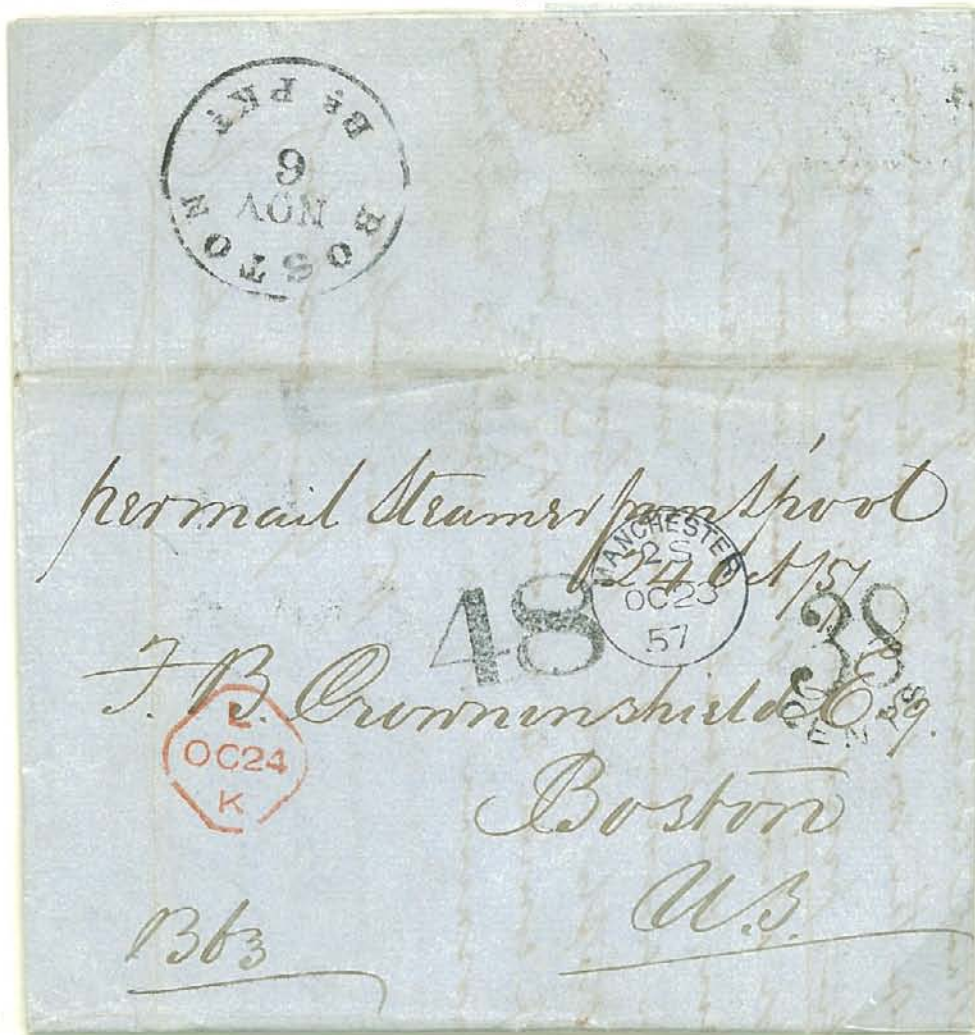 BOSTON
NOV
Br PKT
per mail Steamer from L'pool
24 Oct /57
MANCHESTER
2 S
OC 23
57
48
38
CENTS
F. B. Crowninshield Esq.
L
OC 24
K
Boston
U.S.